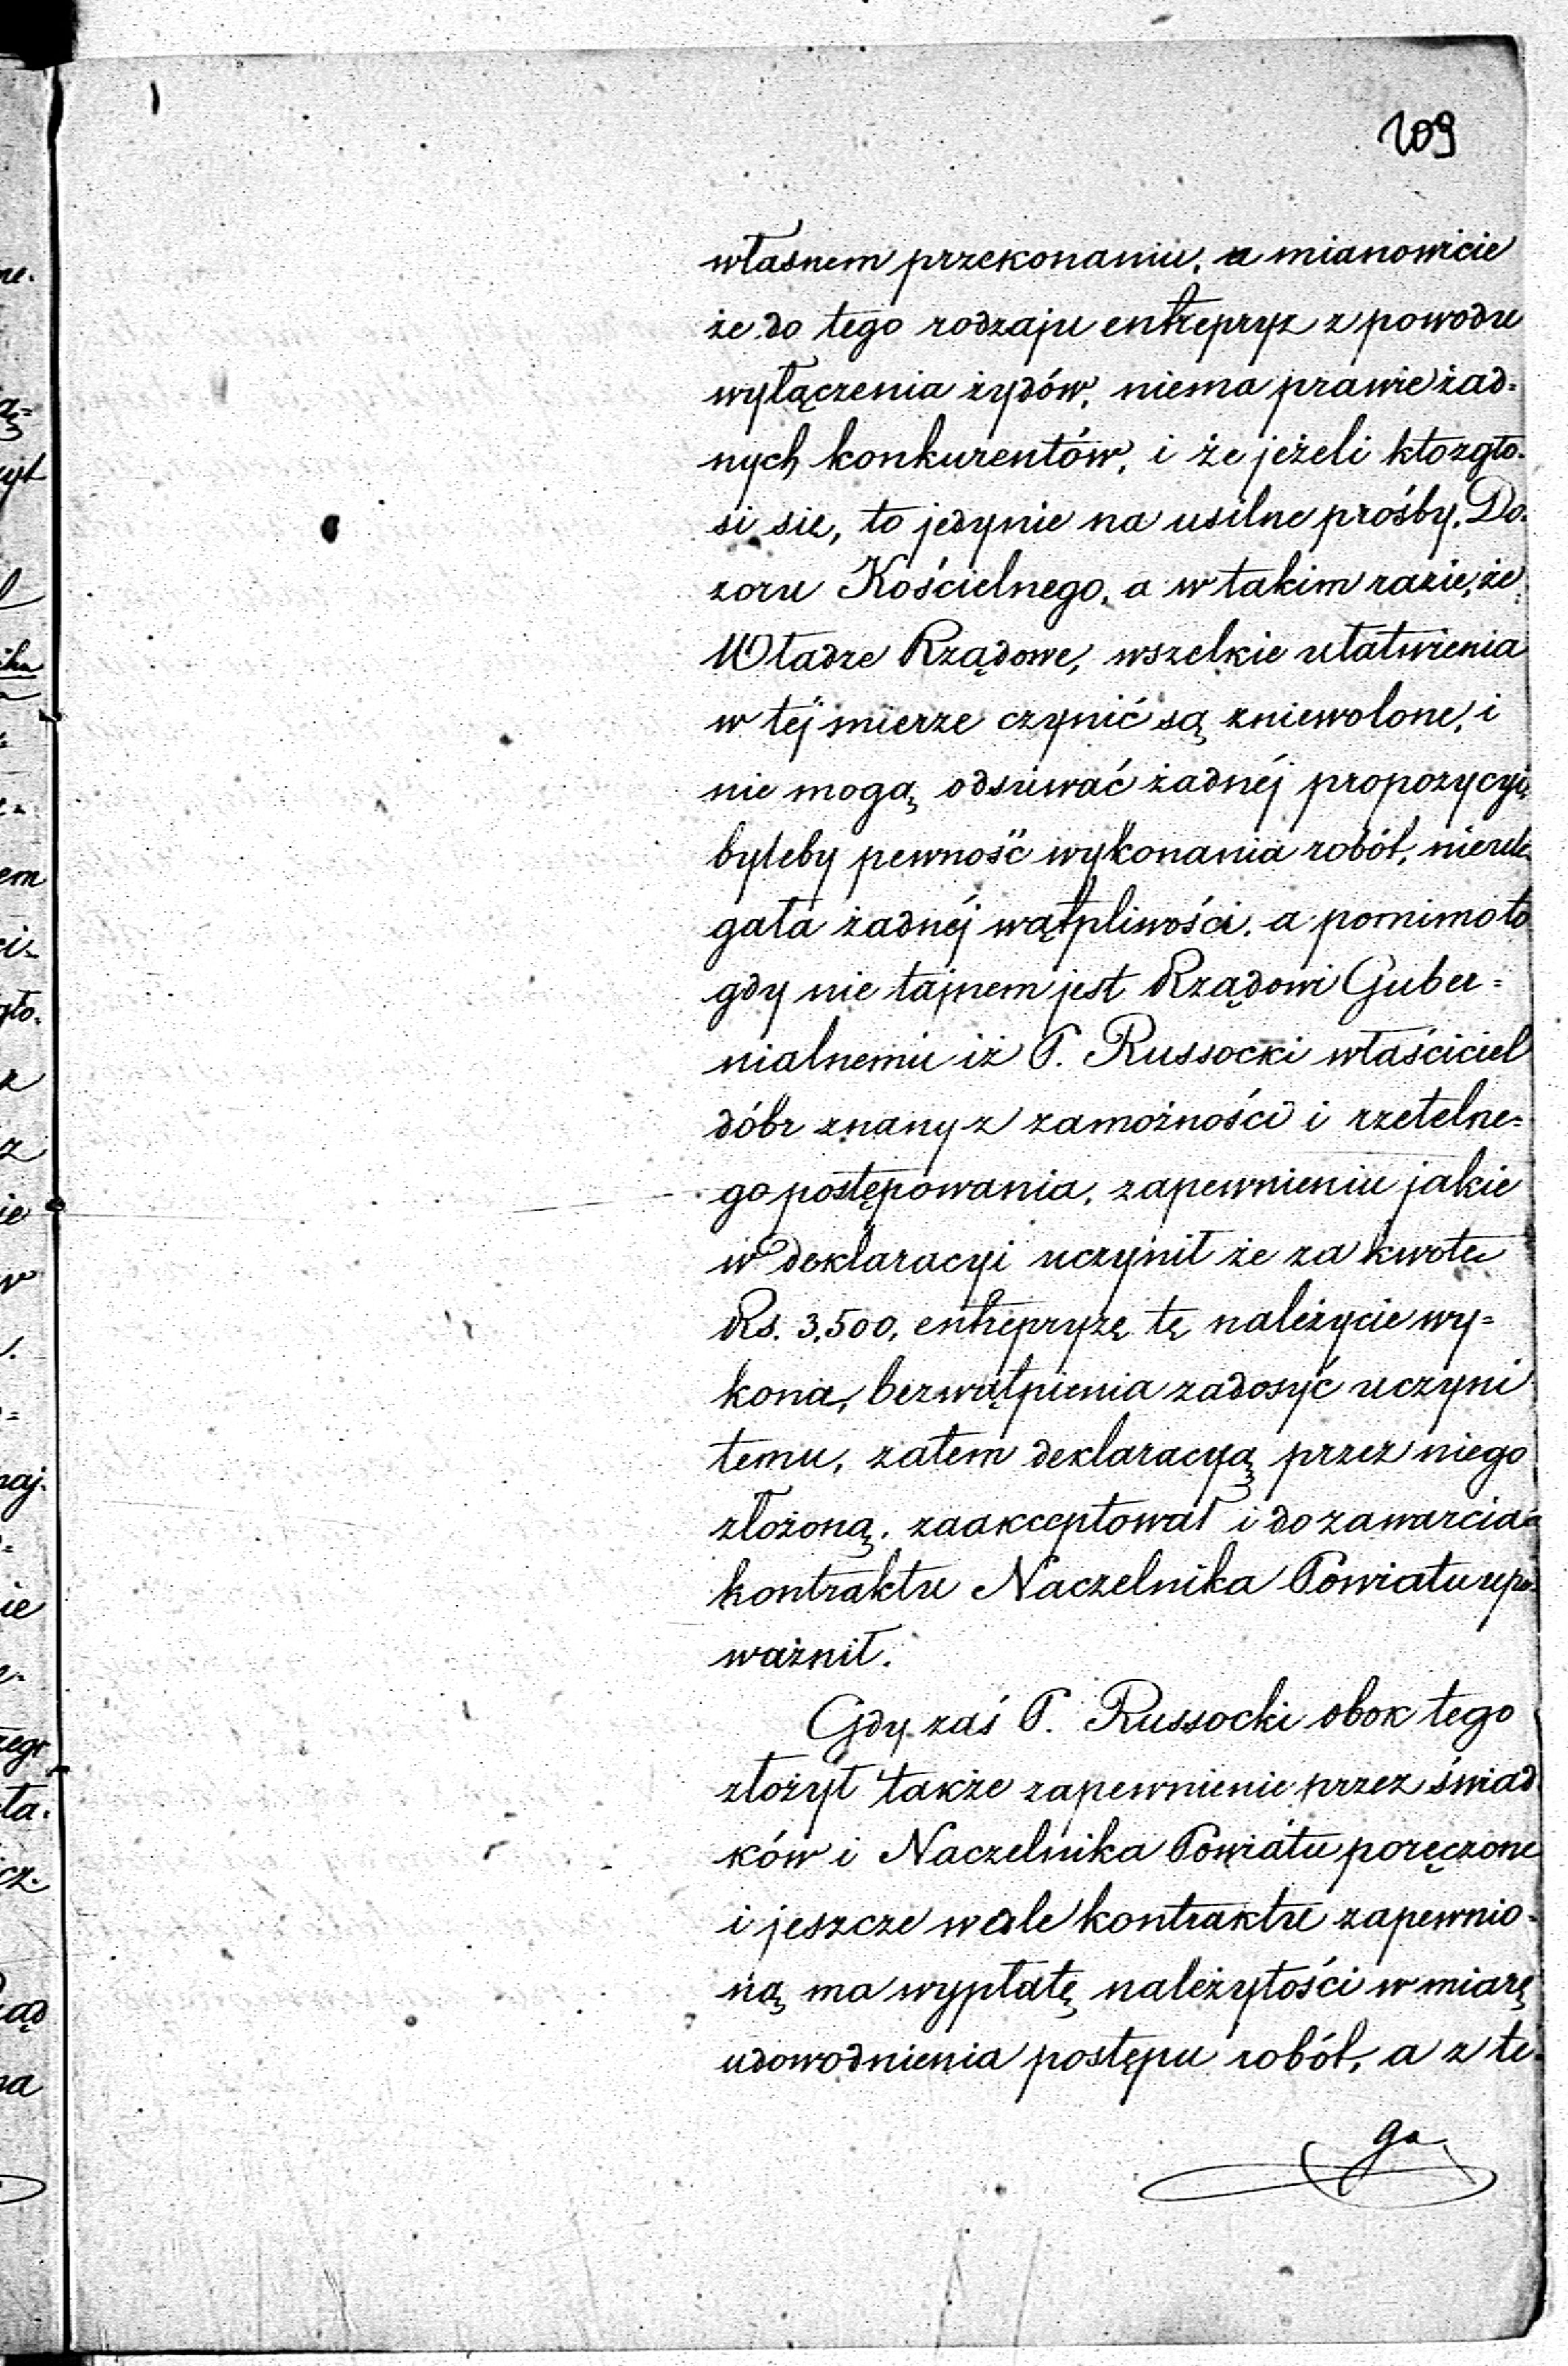 109
własnem przekonaniu, a mianowicie
że do tego rodzaju entrepryz z powodu
wyłączenia żydów, niema prawie żad=
nych konkurentów, i że jeżeli kto zgło-
si się, to jedynie na usilne prośby Do-
zoru Kościelnego, a w takim razie, że
Władze Rządowe, wszelkie ułatwienia
w téj mierze czynić są zniewolone, i
nie mogą odsuwać żadnéj propozycyi,
byleby pewność wykonania robót, nieule-
gała żadnéj wątpliwości, a pomimo to
gdy nie tajnem jest Rządowi Guber=
nialnemu iż P. Russocki właściciel
dóbr znany z zamożności i rzetelne=
go postępowania, zapewnieniu jakie
w deklaracyi uczynił że za kwotę
Rs. 3,500, entrepryzę tę należycie wy=
kona, bezwątpienia zadosyć uczyni
temu, zatem deklaracyą przez niego
złożoną, zaakceptował i do zawarcia
kontraktu Naczelnika Powiatu upo-
ważnił.
Gdy zaś P. Russocki obok tego
złożył także zapewnienie przez świad
ków i Naczelnika Powiatu poręczone
i jeszcze wedle kontraktu zapewnio-
ną ma wypłatę należytości w miarę
udowodnienia postępu robót, a z te-
go